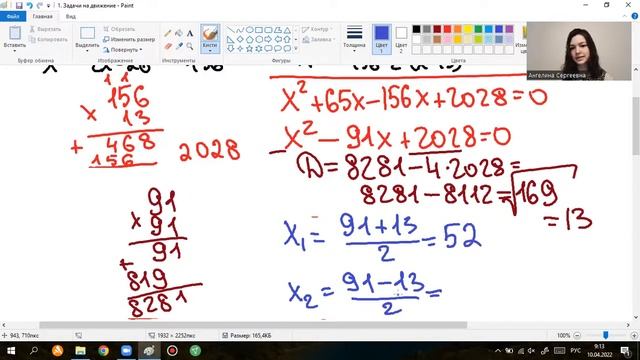 1. Задачи на движение - Paint
Файл Главная Вид
Вставить
Выделить
Обрезать
Изменить размер
Повернуть
Кисти
Контур
Заливка
Толщина
Цвет 1
Цвет 2
Буфер обмена
Изображение
Инструменты
Фигуры
Ангелина Сергеевна
1 1
156
x 13
+ 468
156
2028
x²+65x-156x+2028=0
x²-91x+2028=0
D=8281-4·2028=
8281-8112=√169
=13
91
x 91
91
+
819
8281
x₁=(91+13)/2=52
x₂=(91-13)/2=
943, 710пкс
1932 × 2252пкс
Размер: 165,4КБ
100%
РУС
9:13
10.04.2022